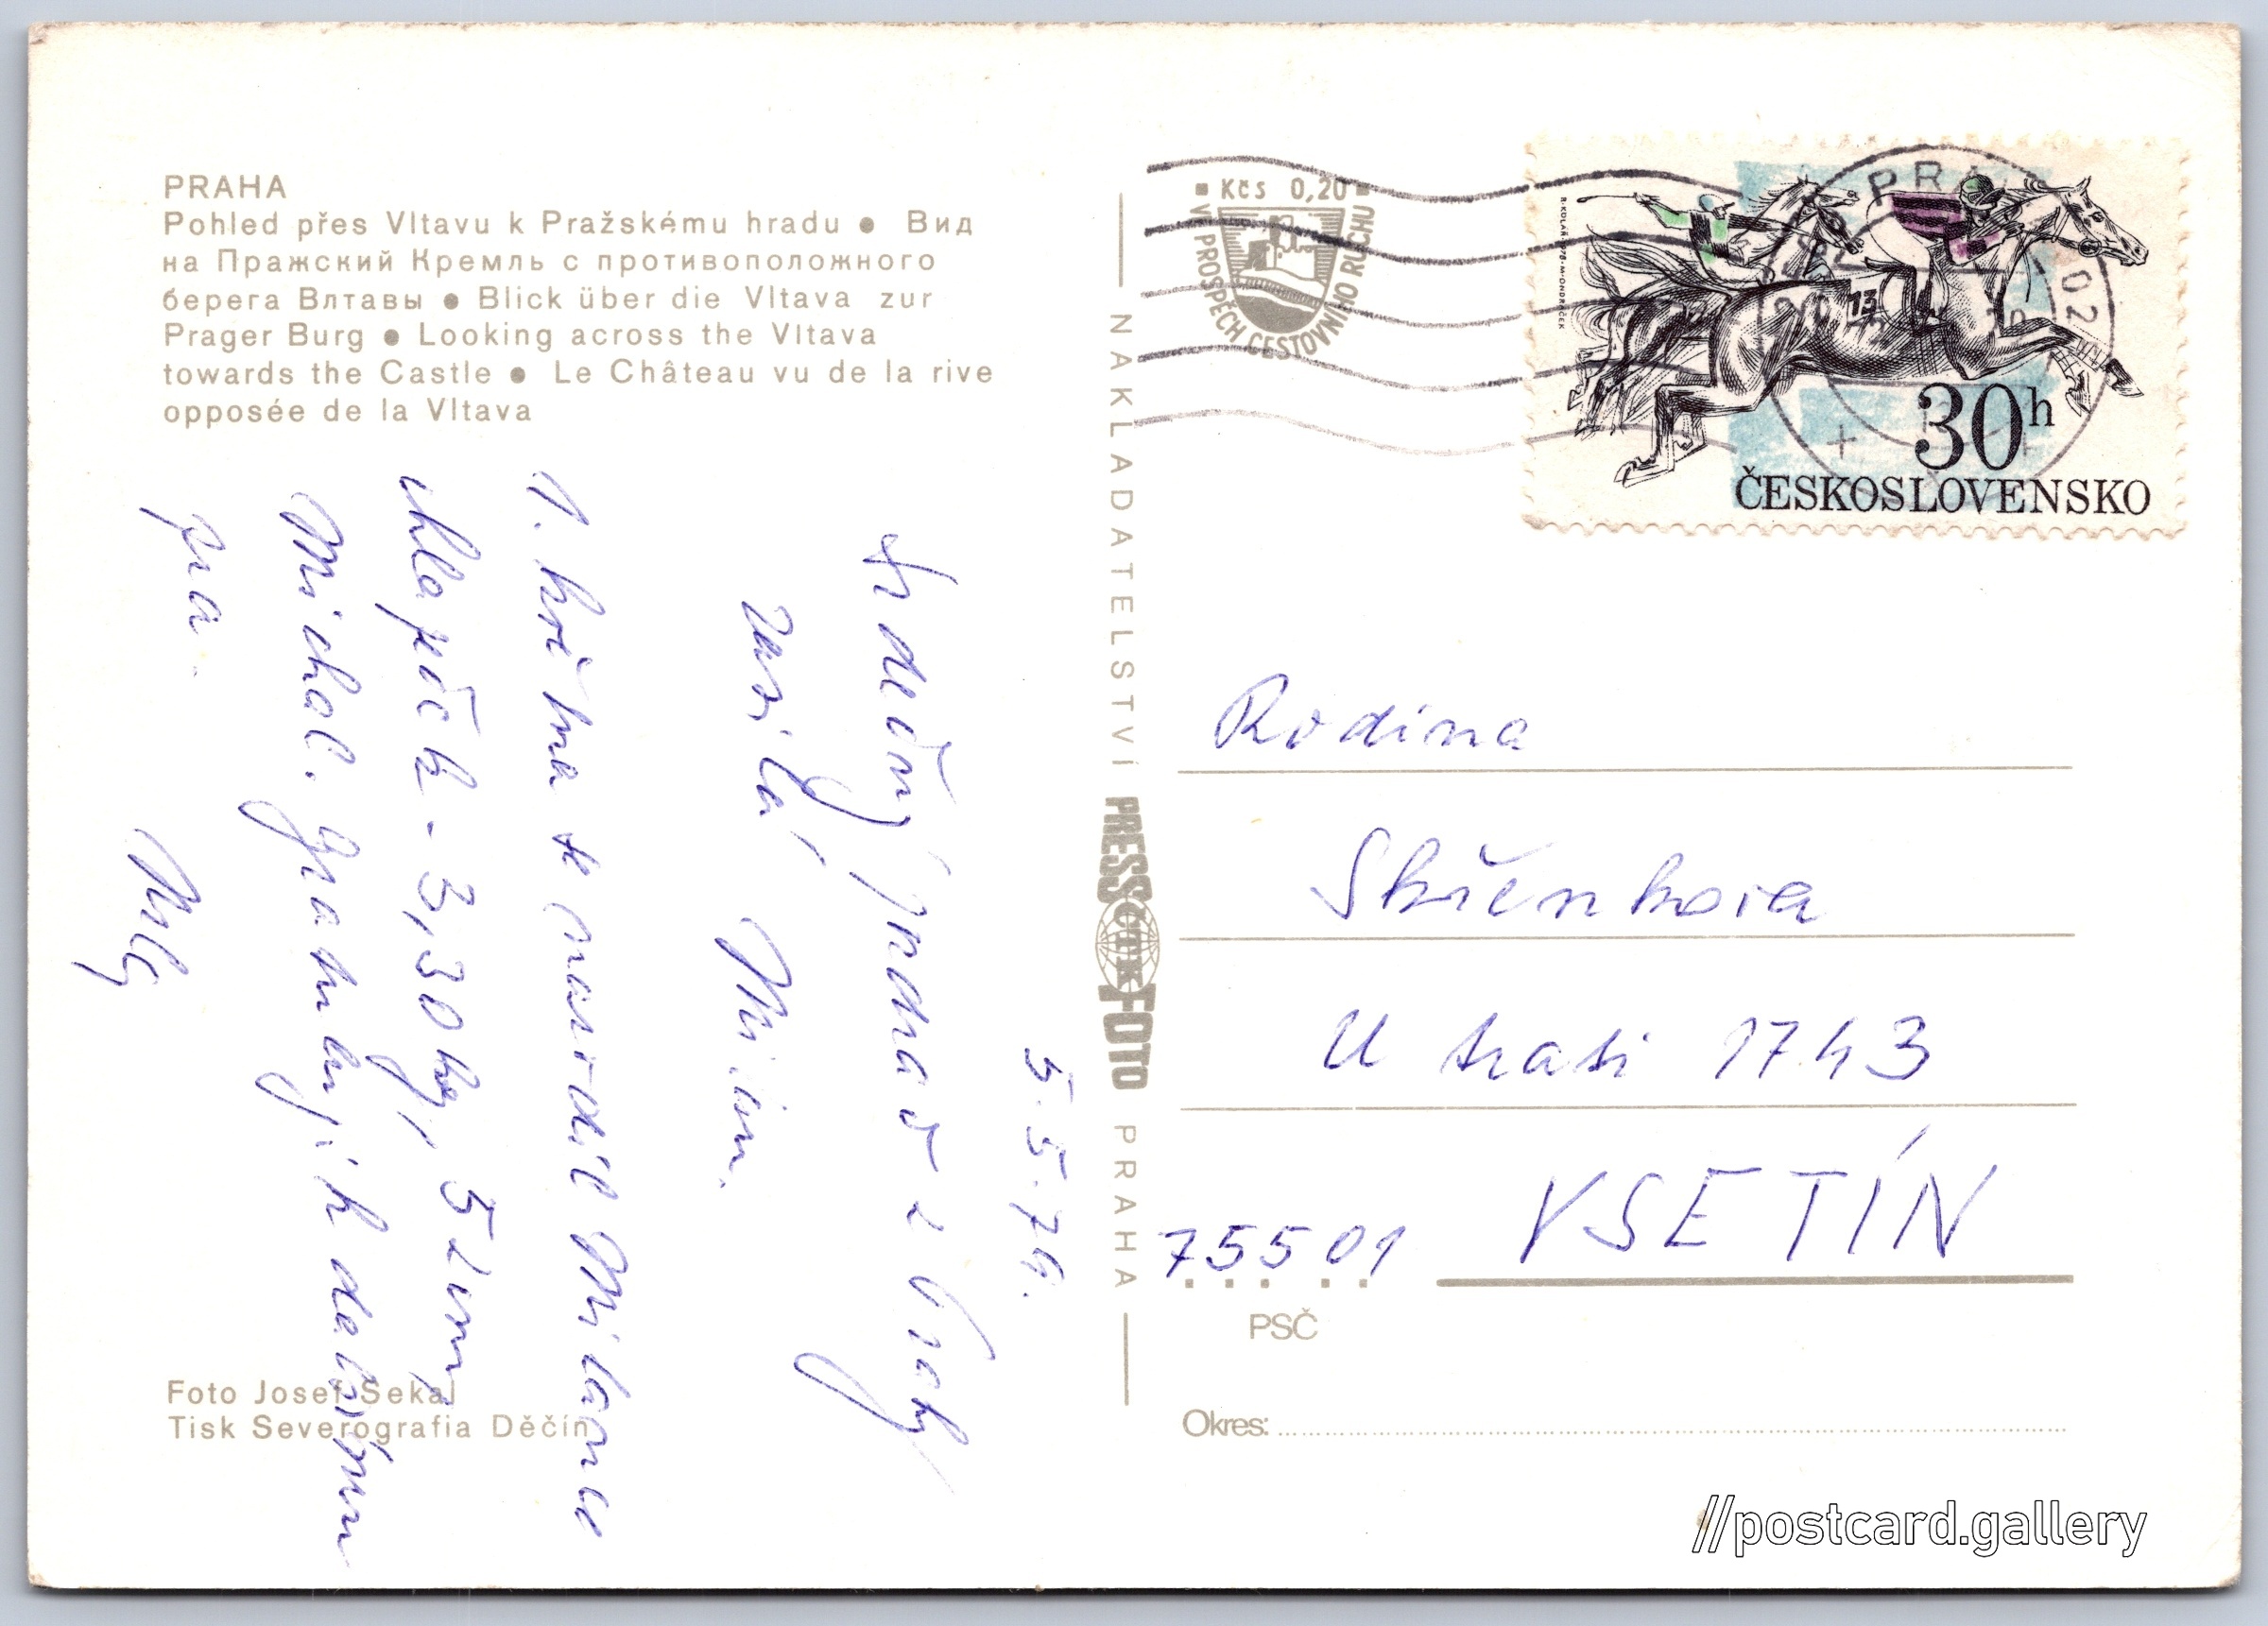 PRAHA
Pohled přes Vltavu k Pražskému hradu ● Вид
на Пражский Кремль с противоположного
берега Влтавы ● Blick über die Vltava zur
Prager Burg ● Looking across the Vltava
towards the Castle ● Le Château vu de la rive
opposée de la Vltava
5.5.79.
Srdečný pozdrav z Prahy
zasílá,
1. května se narodil Milance
chlapeček - 3,30 kg,
Michal. Gratuluji k dalšímu
Foto Josef Sekal
Tisk Severografia Děčín
NAKLADATELSTVÍ PRESSFOTO PRAHA
ČTK
Kčs 0,20
V PROSPĚCH CESTOVNÍHO RUCHU
R. KOLÁŘ 1978 · M. ONDRÁČEK
13
30h
ČESKOSLOVENSKO
Rodina
U trati 1743
75501 VSETÍN
PSČ
Okres:
//postcard.gallery